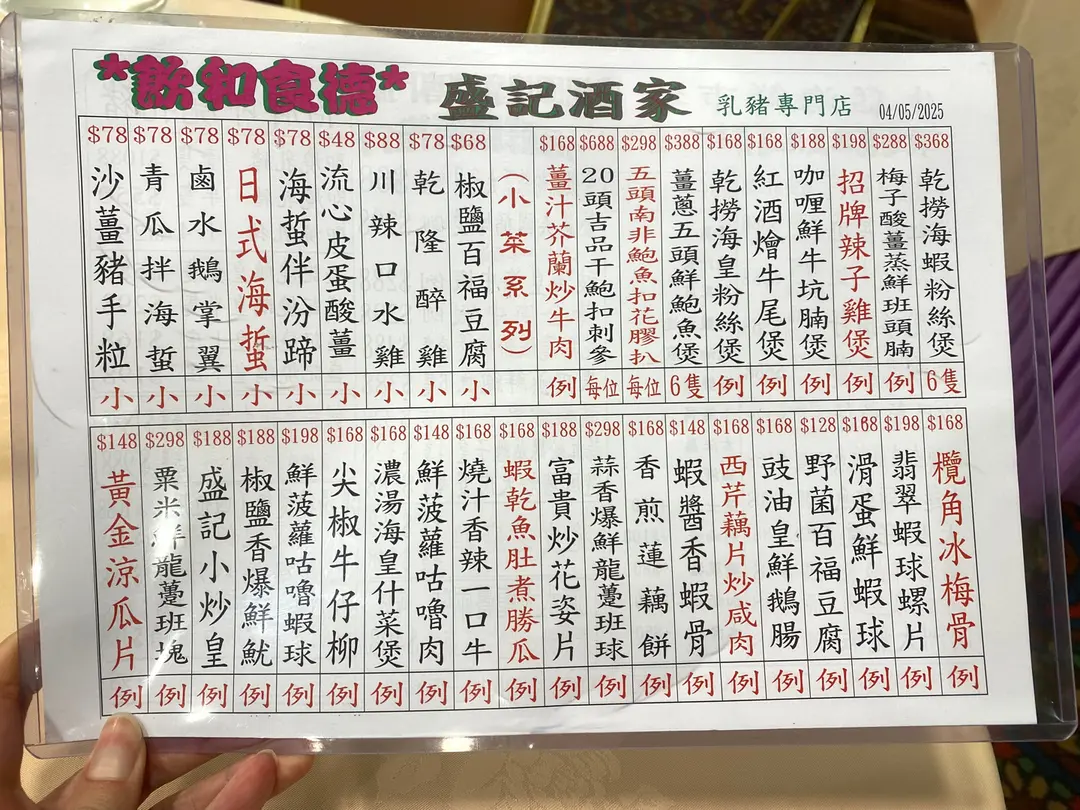 *飲和食德* 盛記酒家 乳豬專門店 04/05/2025
$368 乾撈海蝦粉絲煲 6隻
$288 梅子酸薑蒸鮮班頭腩 例
$198 招牌辣子雞煲 例
$188 咖喱鮮牛坑腩煲 例
$168 紅酒燴牛尾煲 例
$168 乾撈海皇粉絲煲 例
$388 薑蔥五頭鮮鮑魚煲 6隻
$298 五頭南非鮑魚扣花膠扒 每位
$688 20頭吉品干鮑扣刺參 每位
$168 薑汁芥蘭炒牛肉 例
(小菜系列)
$68 椒鹽百福豆腐 小
$78 乾隆醉雞 小
$88 川辣口水雞 小
$48 流心皮蛋酸薑 小
$78 海蜇伴汾蹄 小
$78 日式海蜇 小
$78 鹵水鵝掌翼 小
$78 青瓜拌海蜇 小
$78 沙薑豬手粒 小
$168 欖角冰梅骨 例
$198 翡翠蝦球螺片 例
$168 滑蛋鮮蝦球 例
$128 野菌百福豆腐 例
$168 豉油皇鮮鵝腸 例
$168 西芹藕片炒咸肉 例
$148 蝦醬香蝦骨 例
$168 香煎蓮藕餅 例
$298 蒜香爆鮮龍躉班球 例
$188 富貴炒花姿片 例
$168 蝦乾魚肚煮勝瓜 例
$168 燒汁香辣一口牛 例
$148 鮮菠蘿咕嚕肉 例
$168 濃湯海皇什菜煲 例
$168 尖椒牛仔柳 例
$198 鮮菠蘿咕嚕蝦球 例
$188 椒鹽香爆鮮魷 例
$188 盛記小炒皇 例
$298 粟米鮮龍躉班塊 例
$148 黃金涼瓜片 例